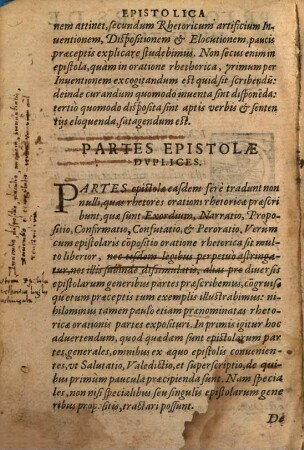 EPISTOLICA
nem attinet, secundum Rhetoricum artificium In-
uentionem, Dispositionem & Elocutionem, paucis
præceptis explicare studebimus. Non secus enim in
epistola, quam in oratione rhethorica, primum per
Inuentionem excogitandum est quid sit scribendū:
deinde curandum quomodo inuenta sint disponēda:
tertio quomodo disposita sint aptis verbis & senten
tijs eloquenda, satagendum est.
PARTES EPISTOLÆ
DVPLICES.
PARTES epistolæ easdem ferè tradunt non
nulli, quæ rhetores orationi rhetoricæ præscri
bunt, quæ sunt Exordium, Narratio, Propo-
sitio, Confirmatio, Confutatio, & Peroratio. Verùm
cum epistolaris cōpositio oratione rhetorica sit mul
to liberior, nec iisdem legibus perpetuò astringa-
tur, nos illis subinde dissimulatis, alias pro diuersis
epistolarum generibus partes præscribemus, cōgruis
que et quantum præceptis tum exemplis illustrabimus: ni-
hilominus tamen paulo etiam prænominatas rhetó-
ricæ orationis partes exposituri. In primis igitur hoc
aduertendum, quod quædam sunt epistolarum par-
tes, generales, omnibus ex æquo epistolis conuenien-
tes, vt Salutatio, Valedictio, et superscriptio, de qui-
bus primùm paucula præcipienda sunt. Nam specia
les, non nisi specialibus seu singulis epistolarum gene
ribus propositis, tractari possunt.
De